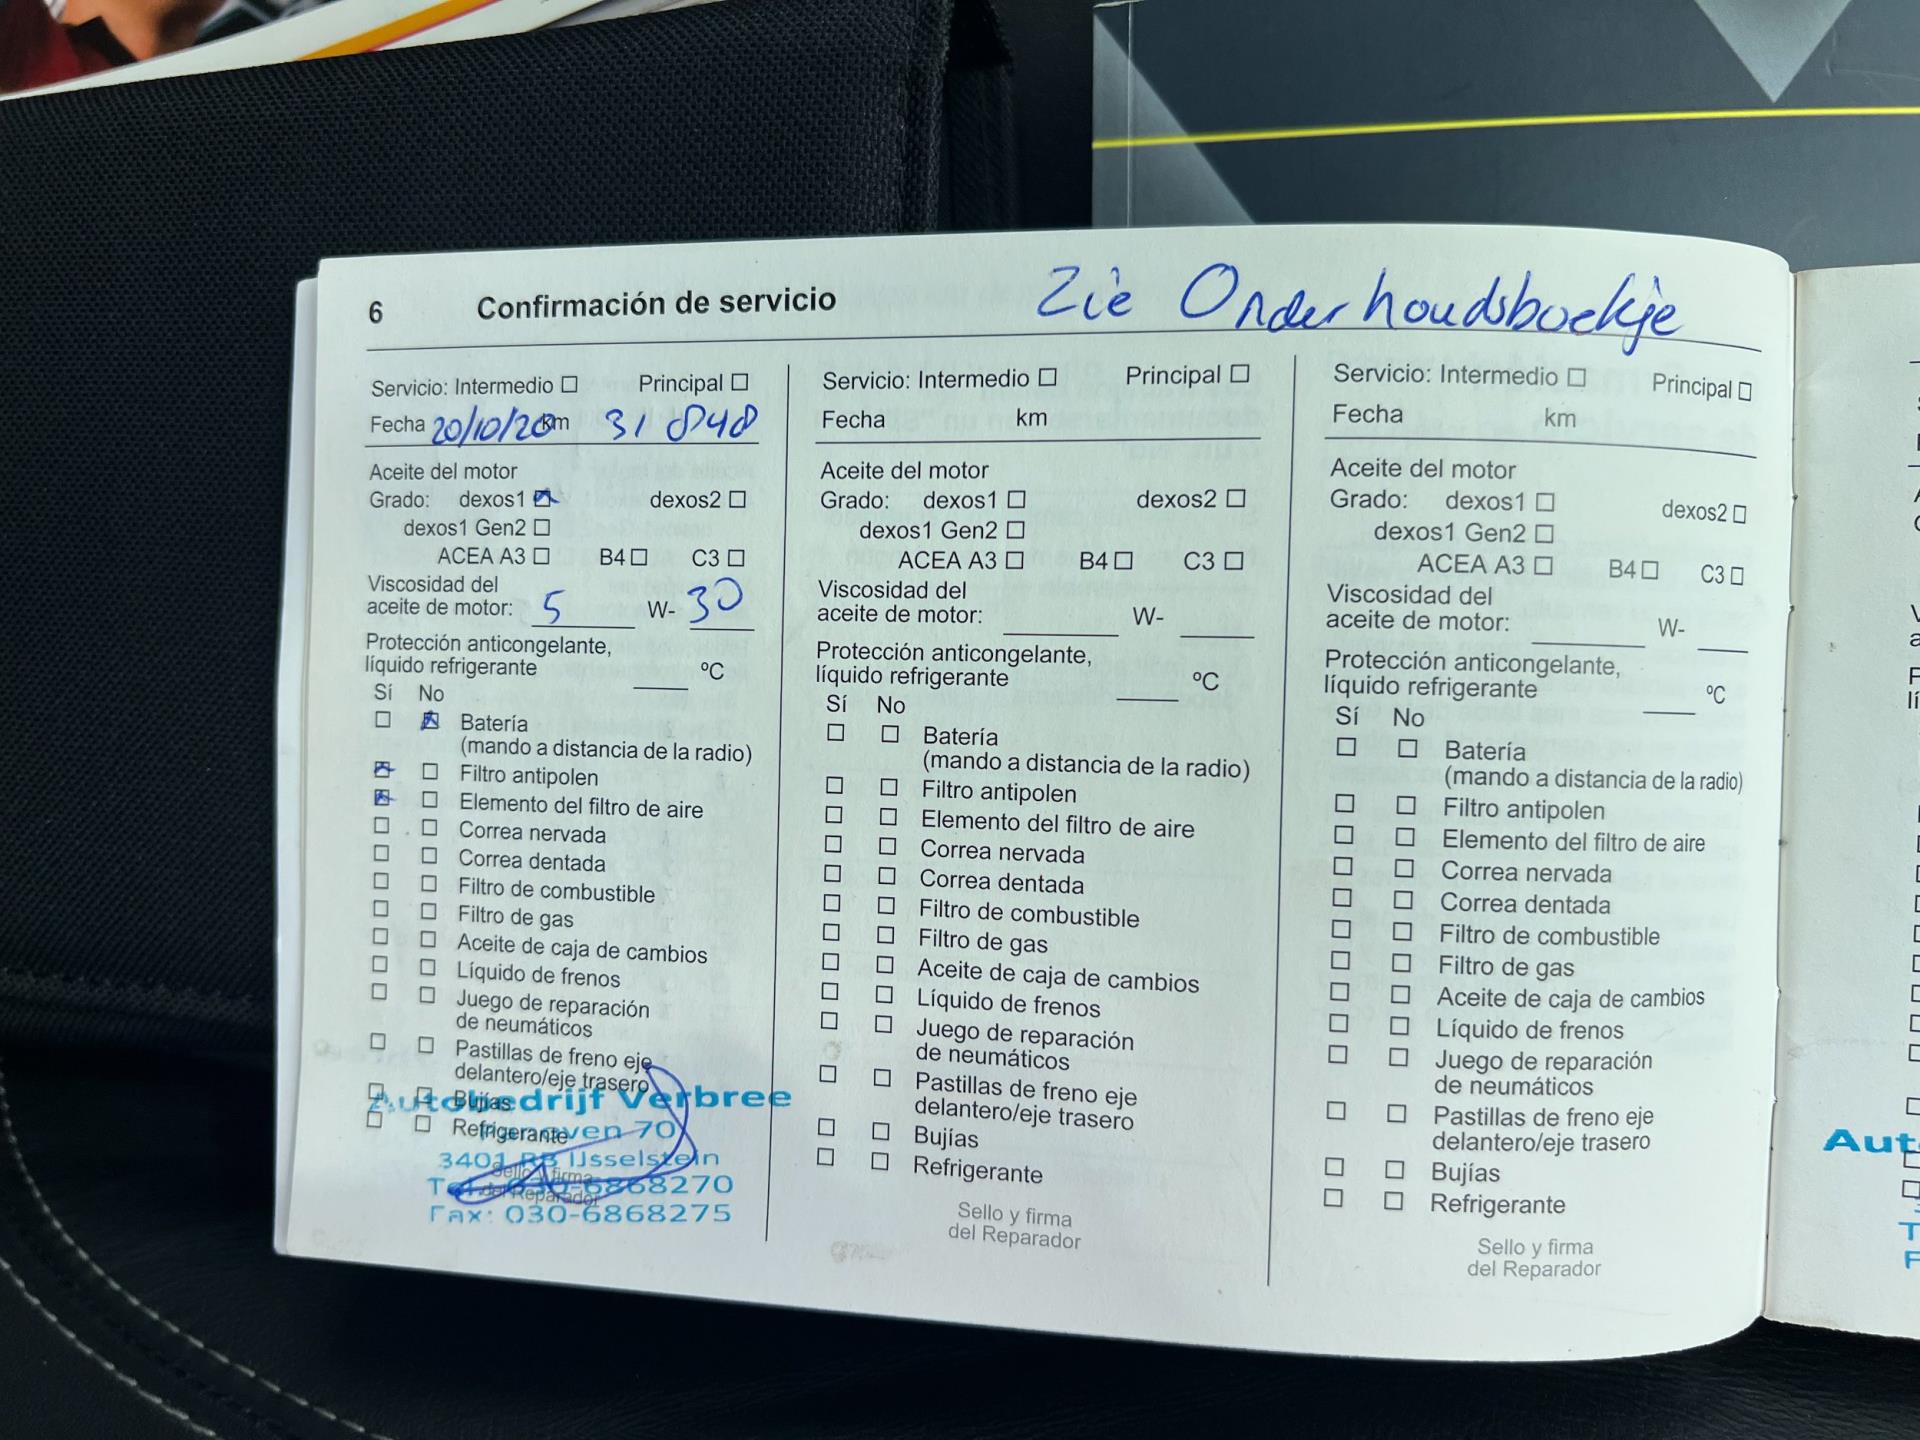 6 Confirmación de servicio Zie Onderhoudsboekje
Servicio: Intermedio ☐ Principal ☐
Fecha 20/10/20 km 31 848
Aceite del motor
Grado: dexos1 ☒ dexos2 ☐
dexos1 Gen2 ☐
ACEA A3 ☐ B4 ☐ C3 ☐
Viscosidad del
aceite de motor: 5 W- 30
Protección anticongelante,
líquido refrigerante ____ ºC
Sí No
☐ ☒ Batería
(mando a distancia de la radio)
☒ ☐ Filtro antipolen
☒ ☐ Elemento del filtro de aire
☐ ☐ Correa nervada
☐ ☐ Correa dentada
☐ ☐ Filtro de combustible
☐ ☐ Filtro de gas
☐ ☐ Aceite de caja de cambios
☐ ☐ Líquido de frenos
☐ ☐ Juego de reparación
de neumáticos
☐ ☐ Pastillas de freno eje
delantero/eje trasero
☐ ☐ Bujías
☐ ☐ Refrigerante
Sello y firma
del Reparador
Autobedrijf Verbree
70
3401 RB IJsselstein
Tel: 030-6868270
Fax: 030-6868275
Servicio: Intermedio ☐ Principal ☐
Fecha km
Aceite del motor
Grado: dexos1 ☐ dexos2 ☐
dexos1 Gen2 ☐
ACEA A3 ☐ B4 ☐ C3 ☐
Viscosidad del
aceite de motor: ____ W- ____
Protección anticongelante,
líquido refrigerante ____ ºC
Sí No
☐ ☐ Batería
(mando a distancia de la radio)
☐ ☐ Filtro antipolen
☐ ☐ Elemento del filtro de aire
☐ ☐ Correa nervada
☐ ☐ Correa dentada
☐ ☐ Filtro de combustible
☐ ☐ Filtro de gas
☐ ☐ Aceite de caja de cambios
☐ ☐ Líquido de frenos
☐ ☐ Juego de reparación
de neumáticos
☐ ☐ Pastillas de freno eje
delantero/eje trasero
☐ ☐ Bujías
☐ ☐ Refrigerante
Sello y firma
del Reparador
Servicio: Intermedio ☐ Principal ☐
Fecha km
Aceite del motor
Grado: dexos1 ☐ dexos2 ☐
dexos1 Gen2 ☐
ACEA A3 ☐ B4 ☐ C3 ☐
Viscosidad del
aceite de motor: ____ W- ____
Protección anticongelante,
líquido refrigerante ____ ºC
Sí No
☐ ☐ Batería
(mando a distancia de la radio)
☐ ☐ Filtro antipolen
☐ ☐ Elemento del filtro de aire
☐ ☐ Correa nervada
☐ ☐ Correa dentada
☐ ☐ Filtro de combustible
☐ ☐ Filtro de gas
☐ ☐ Aceite de caja de cambios
☐ ☐ Líquido de frenos
☐ ☐ Juego de reparación
de neumáticos
☐ ☐ Pastillas de freno eje
delantero/eje trasero
☐ ☐ Bujías
☐ ☐ Refrigerante
Sello y firma
del Reparador